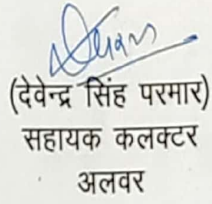 (देवेन्द्र सिंह परमार)
सहायक कलक्टर
अलवर